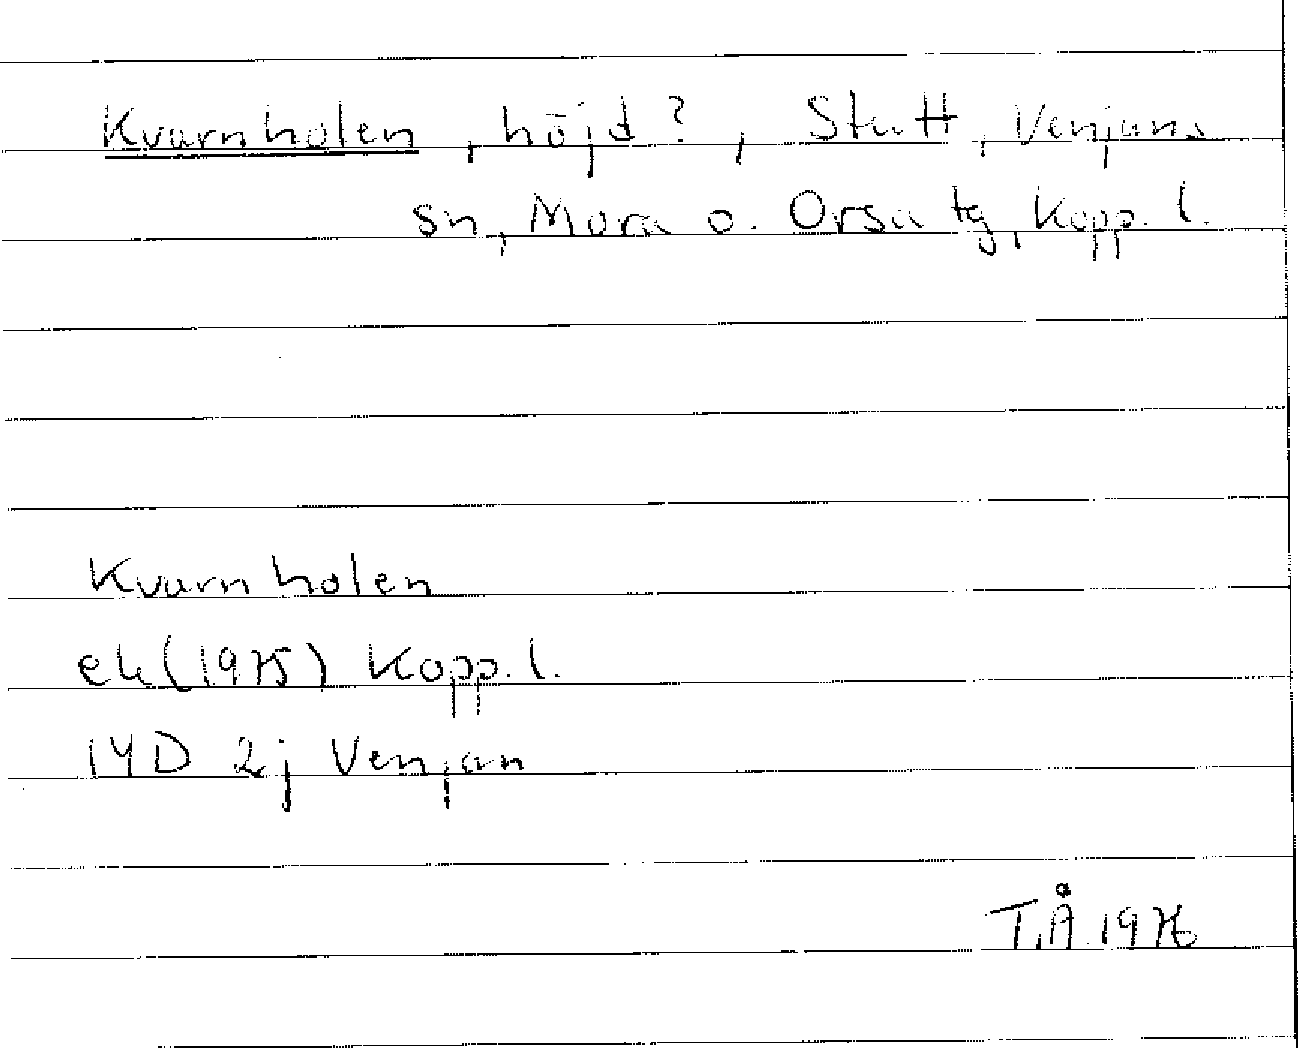 Kvarnholen, höjd?, Stutt, Venjans
sn, Mora o. Orsa tg, Kopp. l.
Kvarnholen
ek (1975) Kopp. l.
14D 2j Venjan
T.Å. 1976